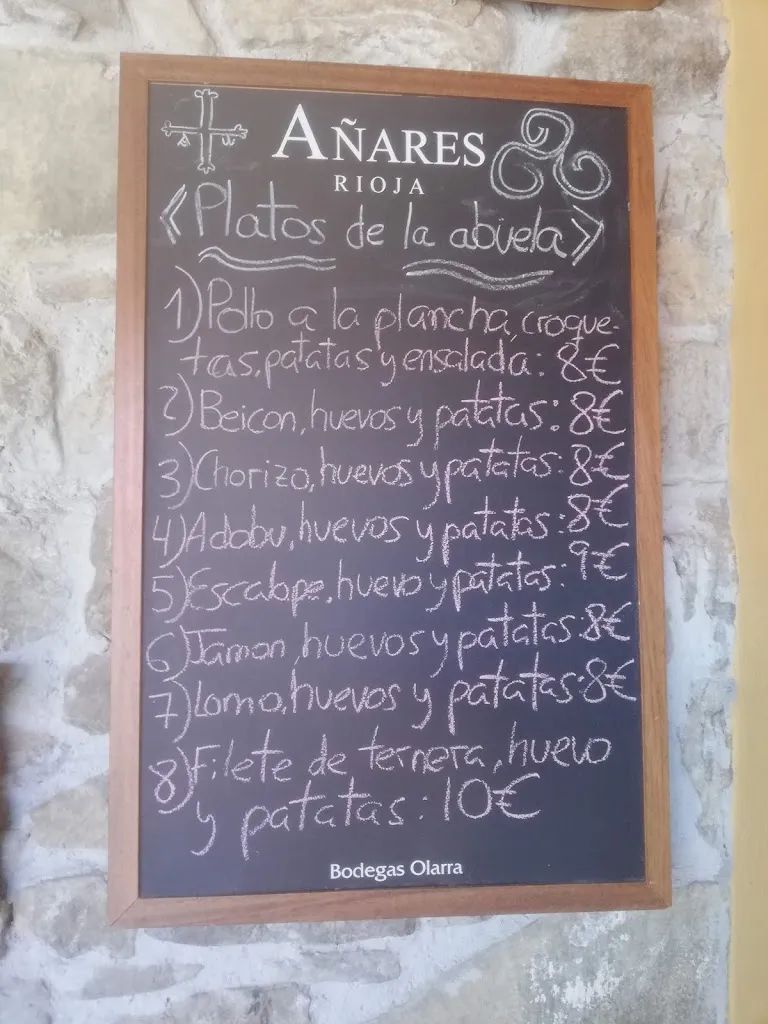 AÑARES
RIOJA
<Platos de la abuela>
1)Pollo a la plancha, croque-
tas, patatas y ensalada: 8€
2)Beicon, huevos y patatas: 8€
3)Chorizo, huevos y patatas: 8€
4)Adobu, huevos y patatas: 8€
5)Escalope, huevo y patatas: 9€
6)Jamon, huevos y patatas: 8€
7)Lomo, huevos y patatas: 8€
8)Filete de ternera, huevo
y patatas: 10€
Bodegas Olarra